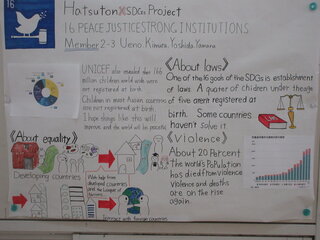 16
Hatsuton×SDGs Project
16 PEACE JUSTICE STRONG INSTITUTIONS
Member 2-3 Ueno Kimura Yoshida Yamura
UNICEF also revealed that 166
million children world wide were
not registered at birth.
Children in most Asian countries
are not registered at birth.
I hope things like this will
improve and the world will be peaceful.
《About laws》
One of the 16 goals of the SDGs is establishment
of laws A quarter of chidren under the age
of five aren't registered at
birth. Some countries
haven't solve it
《About equality》
Developing countries
With help from
developed countries
and the League of
Nations
Interact with foreign countries
《Violence》
About 20 Percent
the world's Population
has died from violence
violence and deaths
are on the rise
again.